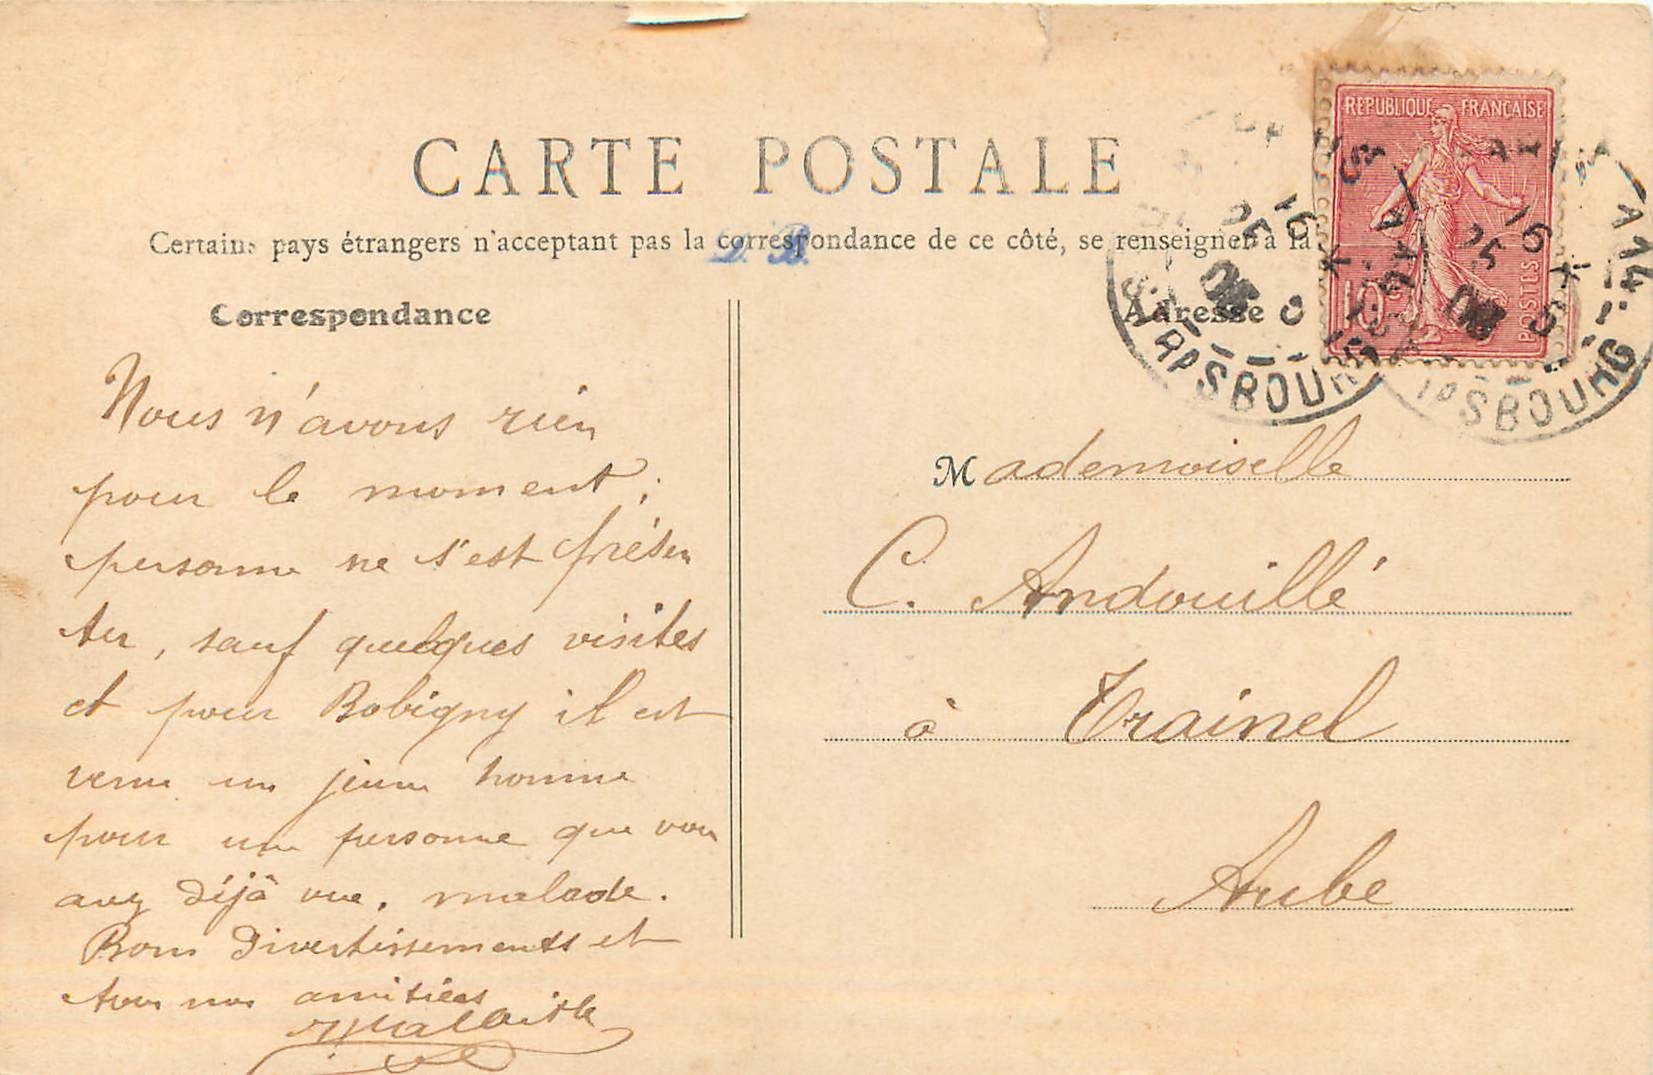 CARTE POSTALE
Certains pays étrangers n'acceptant pas la correspondance de ce côté, se renseigner à la
D. B.
Correspondance
Nous n'avons rien
pour le moment ;
personne ne s'est présen
ter, sauf quelques visites
et pour Bobigny il est
venu un jeune homme
pour une personne que vous
avez déjà vue, malade.
Bons Divertissements et
tous nos amitiées
Adresse
REPUBLIQUE FRANÇAISE
10c
POSTES
Mademoiselle
C. Andouillé
à Trainel
Aube